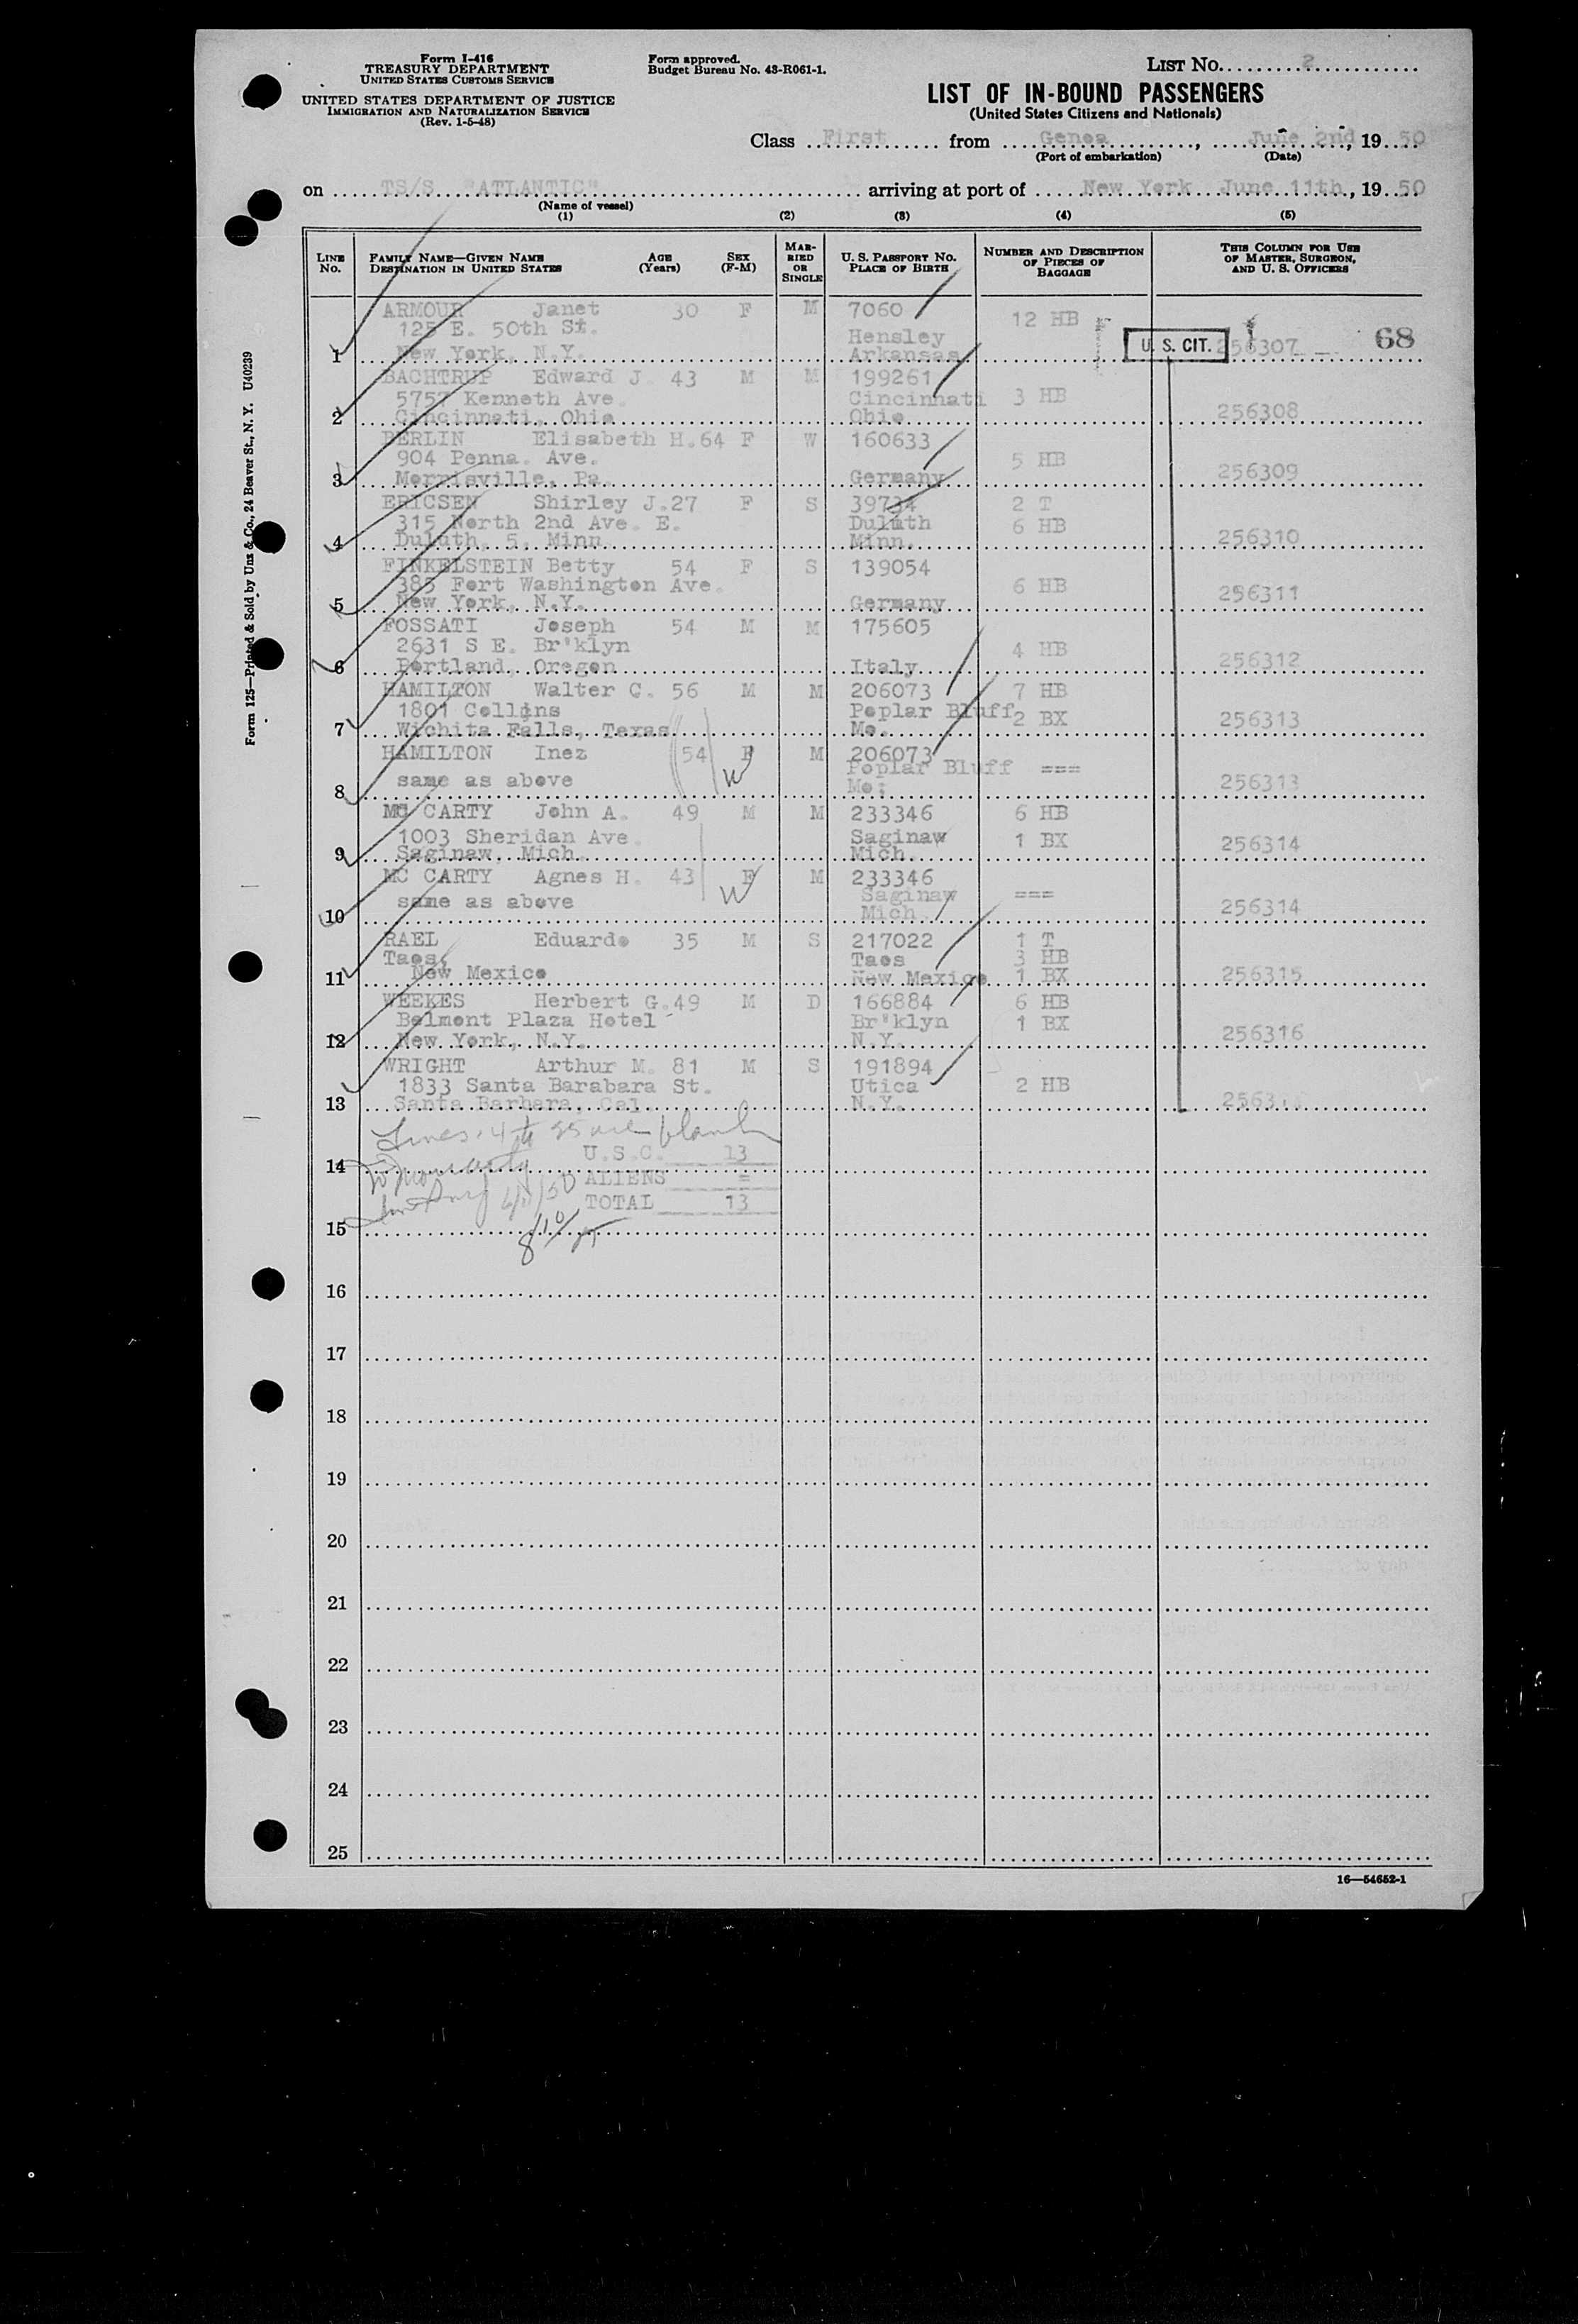 Form I-416
TREASURY DEPARTMENT
UNITED STATES CUSTOMS SERVICE
UNITED STATES DEPARTMENT OF JUSTICE
IMMIGRATION AND NATURALIZATION SERVICE
(Rev. 1-5-48)
Form approved.
Budget Bureau No. 43-R061-1.
LIST No. 2
LIST OF IN-BOUND PASSENGERS
(United States Citizens and Nationals)
Class First from Genoa, June 2nd, 1950
(Port of embarkation) (Date)
on TS/S "ATLANTIC" arriving at port of New York June 11th, 1950
(Name of vessel)
(1) (2) (3) (4) (5)
LINE No. FAMILY NAME—GIVEN NAME DESTINATION IN UNITED STATES AGE (Years) SEX (F-M) MARRIED OR SINGLE U. S. PASSPORT NO. PLACE OF BIRTH NUMBER AND DESCRIPTION OF PIECES OF BAGGAGE THIS COLUMN FOR USE OF MASTER, SURGEON, AND U. S. OFFICERS
ARMOUR Janet 30 F M 7060
125 E. 50th St. Hensley 12 HB
1 New York, N.Y. Arkansas U. S. CIT. 256307 68
BACHTRUP Edward J 43 M M 199261
5757 Kenneth Ave. Cincinnati 3 HB
2 Cincinnati, Ohio Ohio 256308
BERLIN Elisabeth H. 64 F W 160633
904 Penna. Ave. 5 HB
3 Morrisville, Pa. Germany 256309
ERICSEN Shirley J. 27 F S 39734 2 T
315 North 2nd Ave. E. Duluth 6 HB
4 Duluth, 5, Minn. Minn. 256310
FINKELSTEIN Betty 54 F S 139054
385 Fort Washington Ave. 6 HB
5 New York, N.Y. Germany 256311
FOSSATI Joseph 54 M M 175605
2631 S E. Br'klyn 4 HB
6 Portland, Oregon Italy 256312
HAMILTON Walter C. 56 M M 206073 7 HB
1801 Collins Poplar Bluff 2 BX
7 Wichita Falls, Texas Mo. 256313
HAMILTON Inez 54 F M 206073
same as above W Poplar Bluff ===
8 Mo. 256313
MC CARTY John A. 49 M M 233346 6 HB
1003 Sheridan Ave. Saginaw 1 BX
9 Saginaw, Mich. Mich. 256314
MC CARTY Agnes H. 43 F M 233346
same as above W Saginaw ===
10 Mich. 256314
RAEL Eduardo 35 M S 217022 1 T
Taos, Taos 3 HB
11 New Mexico New Mexico 1 BX 256315
WEEKES Herbert G. 49 M D 166884 6 HB
Belmont Plaza Hotel Br'klyn 1 BX
12 New York, N.Y. N.Y. 256316
WRIGHT Arthur M. 81 M S 191894
1833 Santa Barabara St. Utica 2 HB
13 Santa Barbara, Cal. N.Y.
Lines 14 to 25 are blank
14 U.S.C. 13
ALIENS =
TOTAL 13
15
16
17
18
19
20
21
22
23
24
25
16—54652-1
Form 125—Printed & Sold by Unz & Co., 24 Beaver St., N. Y. U40239